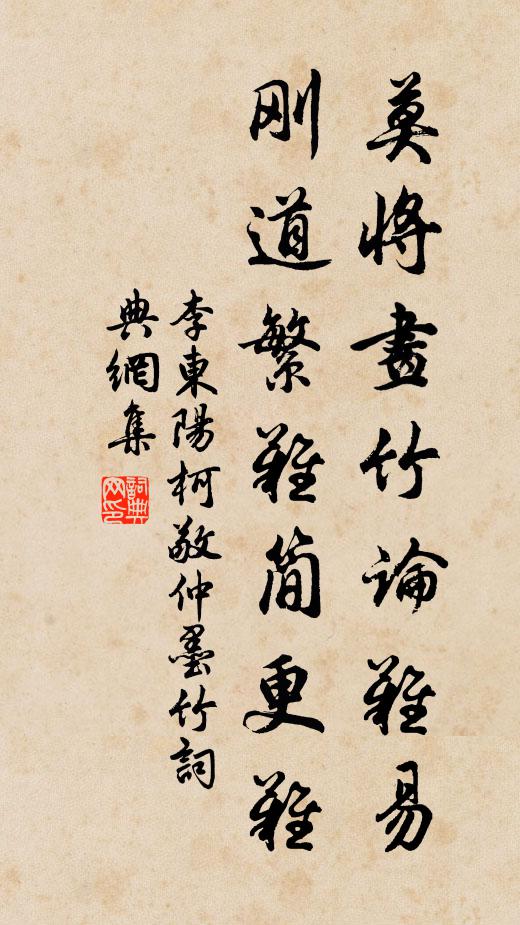 莫將畫竹論難易
刚道繁難简更難
李東陽柯敬仲墨竹詞
典網集
詞典网印